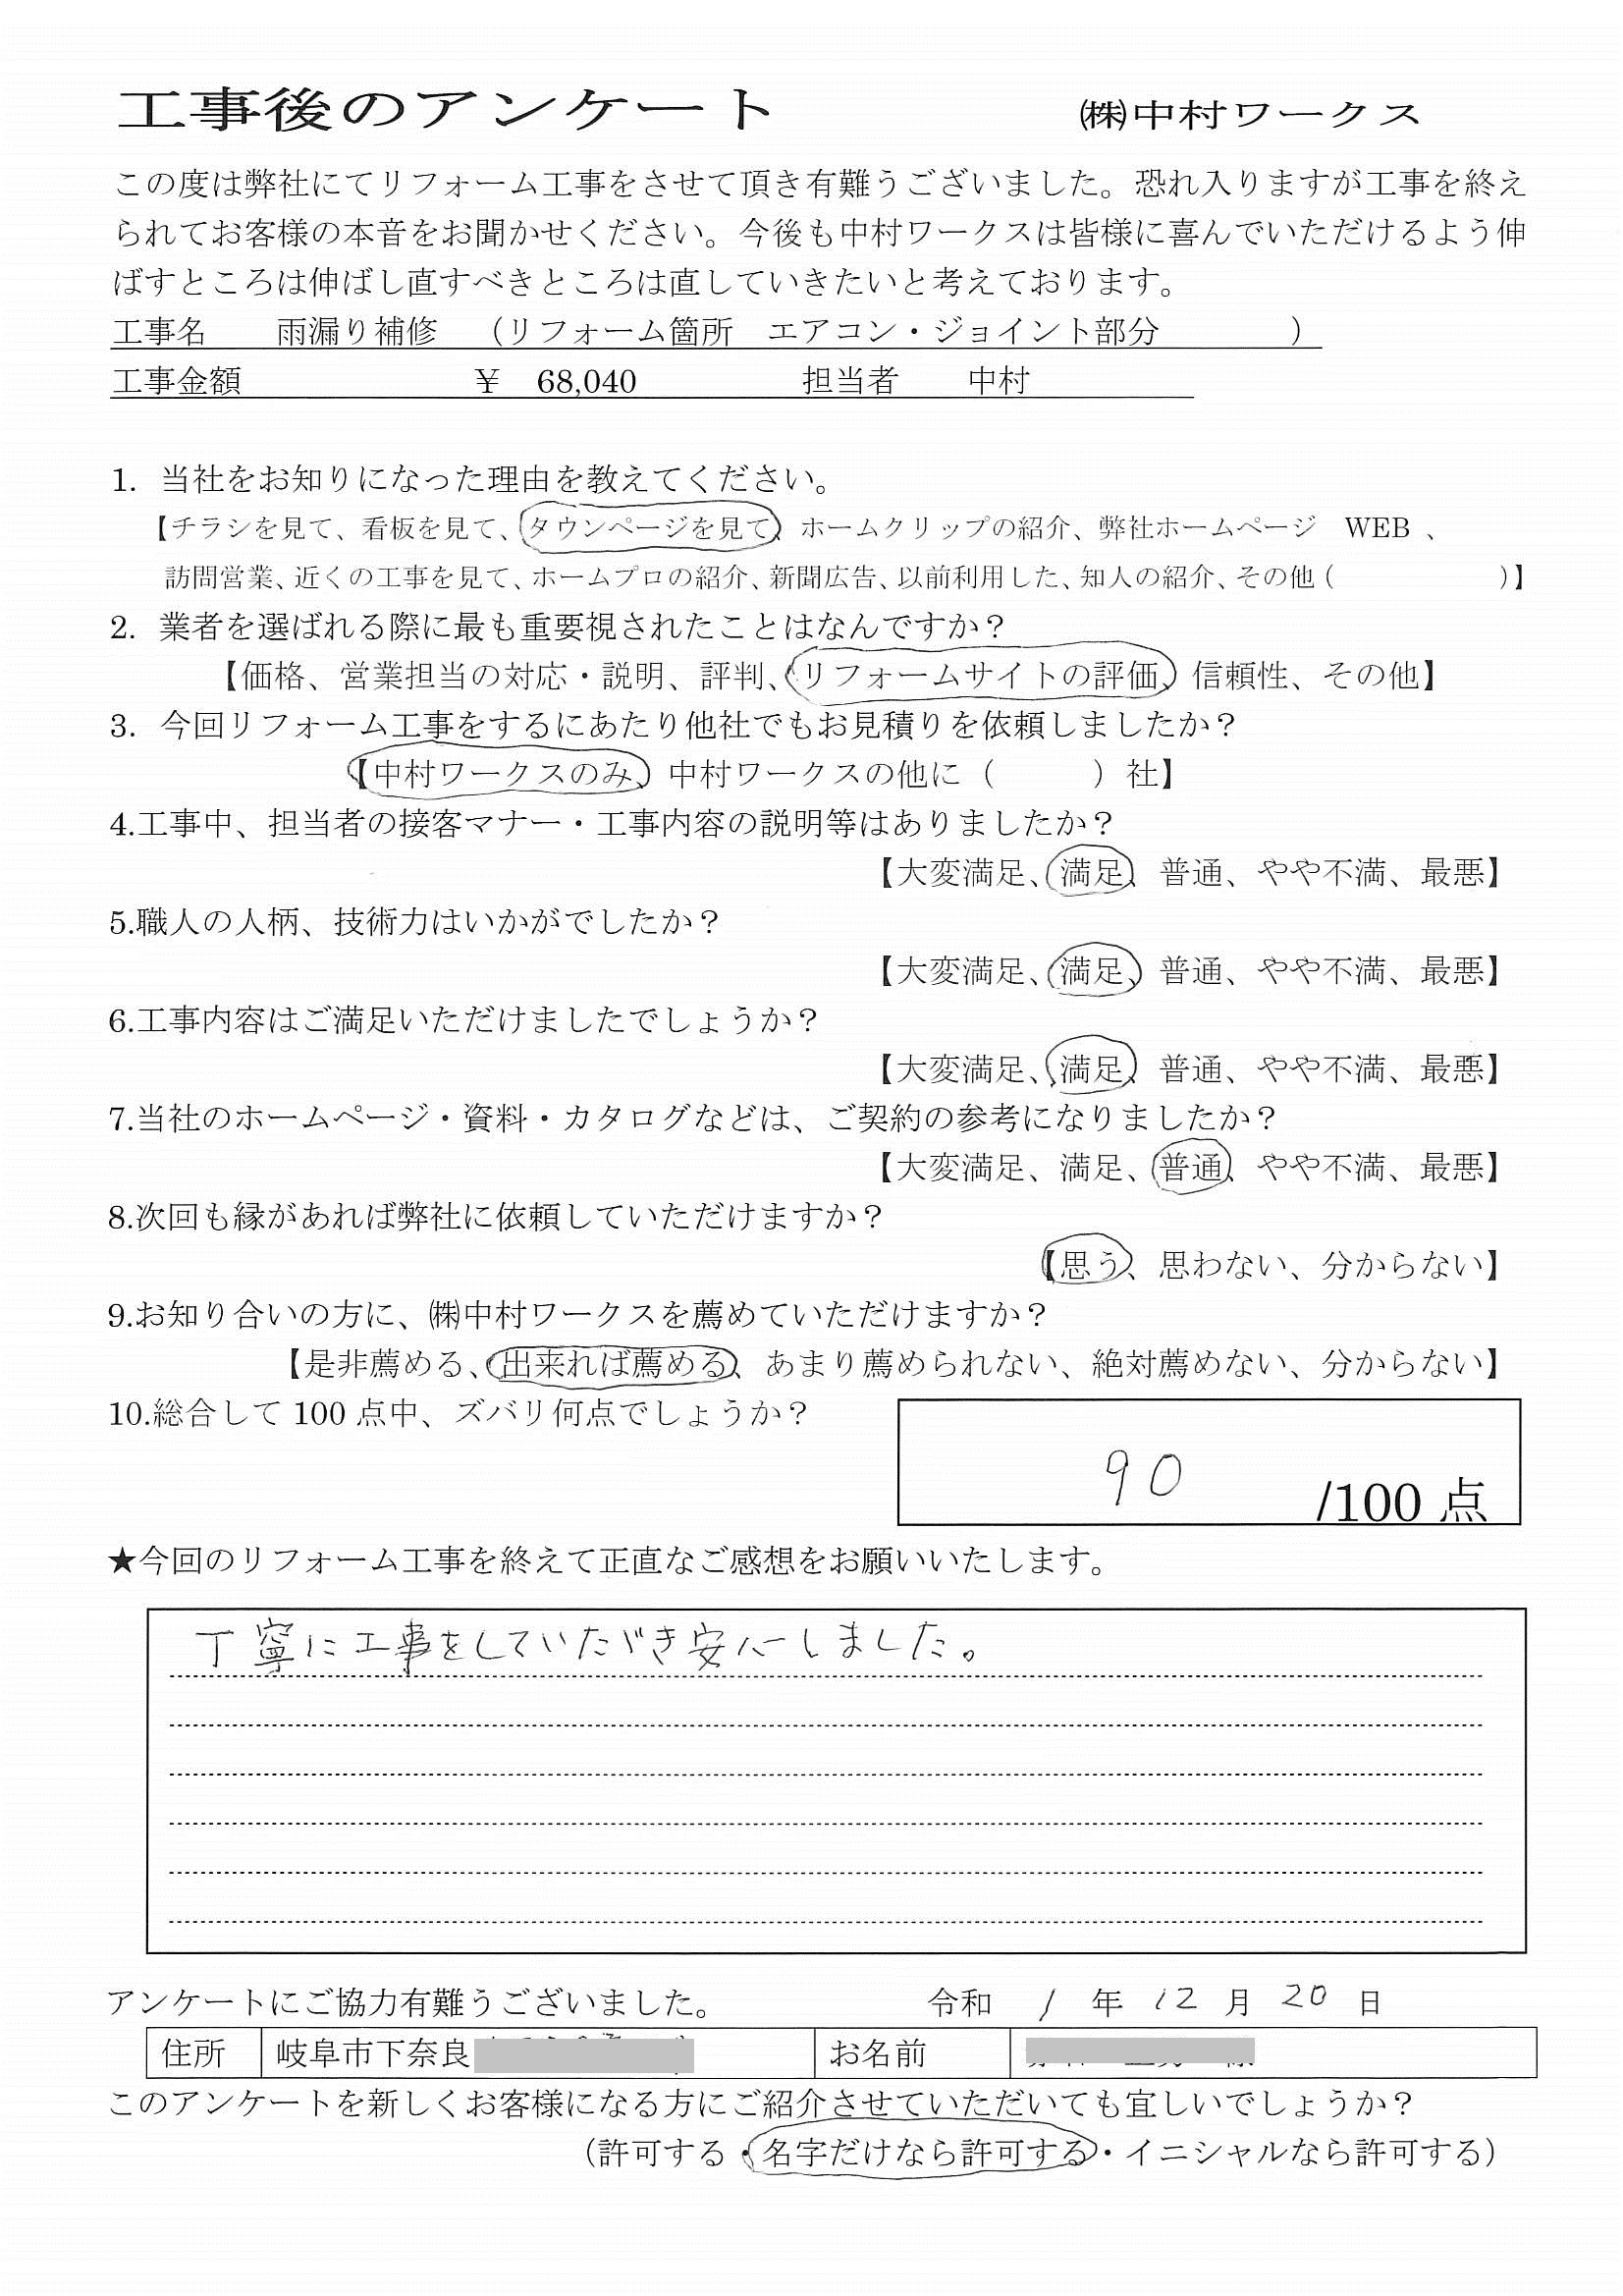 工事後のアンケート ㈱中村ワークス
この度は弊社にてリフォーム工事をさせて頂き有難うございました。恐れ入りますが工事を終え
られてお客様の本音をお聞かせください。今後も中村ワークスは皆様に喜んでいただけるよう伸
ばすところは伸ばし直すべきところは直していきたいと考えております。
工事名 雨漏り補修 （リフォーム箇所 エアコン・ジョイント部分 ）
工事金額 ¥ 68,040 担当者 中村
1. 当社をお知りになった理由を教えてください。
【チラシを見て、看板を見て、タウンページを見て、ホームクリップの紹介、弊社ホームページ WEB 、
訪問営業、近くの工事を見て、ホームプロの紹介、新聞広告、以前利用した、知人の紹介、その他（ ）】
2. 業者を選ばれる際に最も重要視されたことはなんですか？
【価格、営業担当の対応・説明、評判、リフォームサイトの評価、信頼性、その他】
3. 今回リフォーム工事をするにあたり他社でもお見積りを依頼しましたか？
【中村ワークスのみ、中村ワークスの他に（ ）社】
4.工事中、担当者の接客マナー・工事内容の説明等はありましたか？
【大変満足、満足、普通、やや不満、最悪】
5.職人の人柄、技術力はいかがでしたか？
【大変満足、満足、普通、やや不満、最悪】
6.工事内容はご満足いただけましたでしょうか？
【大変満足、満足、普通、やや不満、最悪】
7.当社のホームページ・資料・カタログなどは、ご契約の参考になりましたか？
【大変満足、満足、普通、やや不満、最悪】
8.次回も縁があれば弊社に依頼していただけますか？
【思う、思わない、分からない】
9.お知り合いの方に、㈱中村ワークスを薦めていただけますか？
【是非薦める、出来れば薦める、あまり薦められない、絶対薦めない、分からない】
10.総合して 100 点中、ズバリ何点でしょうか？
90 /100 点
★今回のリフォーム工事を終えて正直なご感想をお願いいたします。
丁寧に工事をしていただき安心しました。
アンケートにご協力有難うございました。 令和 1 年 12 月 20 日
住所 岐阜市下奈良 お名前
このアンケートを新しくお客様になる方にご紹介させていただいても宜しいでしょうか？
（許可する・名字だけなら許可する・イニシャルなら許可する）